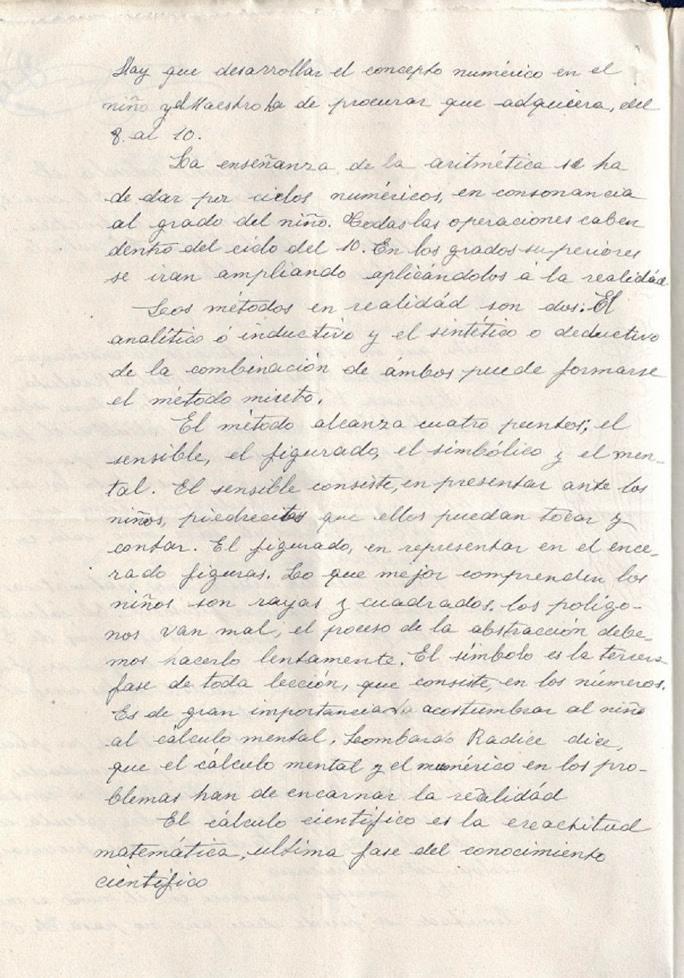 Hay que desarrollar el concepto numérico en el
niño y el Maestro ha de procurar que adquiera, del
8 al 10.
La enseñanza, de la aritmética se ha
de dar por ciclos numéricos, en consonancia
al grado del niño. Todas las operaciones caben
dentro del ciclo del 10. En los grados superiores
se iran ampliando aplicándolos á la realidad
Los métodos en realidad son dos: El
analítico ó inductivo y el sintético o deductivo
de la combinación de ámbos puede formarse
el método mixto.
El método alcanza cuatro puntos; el
sensible, el figurado, el simbólico y el men-
tal. El sensible consiste, en presentar ante los
niños, piedrecitas que ellos puedan tocar y
contar. El figurado, en representar en el ence-
rado figuras. Lo que mejor comprenden los
niños son rayas y cuadrados, los polígo-
nos van mal, el proceso de la abstracción debe-
mos hacerlo lentamente. El símbolo es la tercera
fase de toda lección, que consiste, en los números.
Es de gran importancia acostumbrar al niño
al cálculo mental. Lombardo Radice dice,
que el cálculo mental y el numérico en los pro-
blemas han de encarnar la realidad
El cálculo científico es la exactitud
matemática, ultima fase del conocimiento
científico